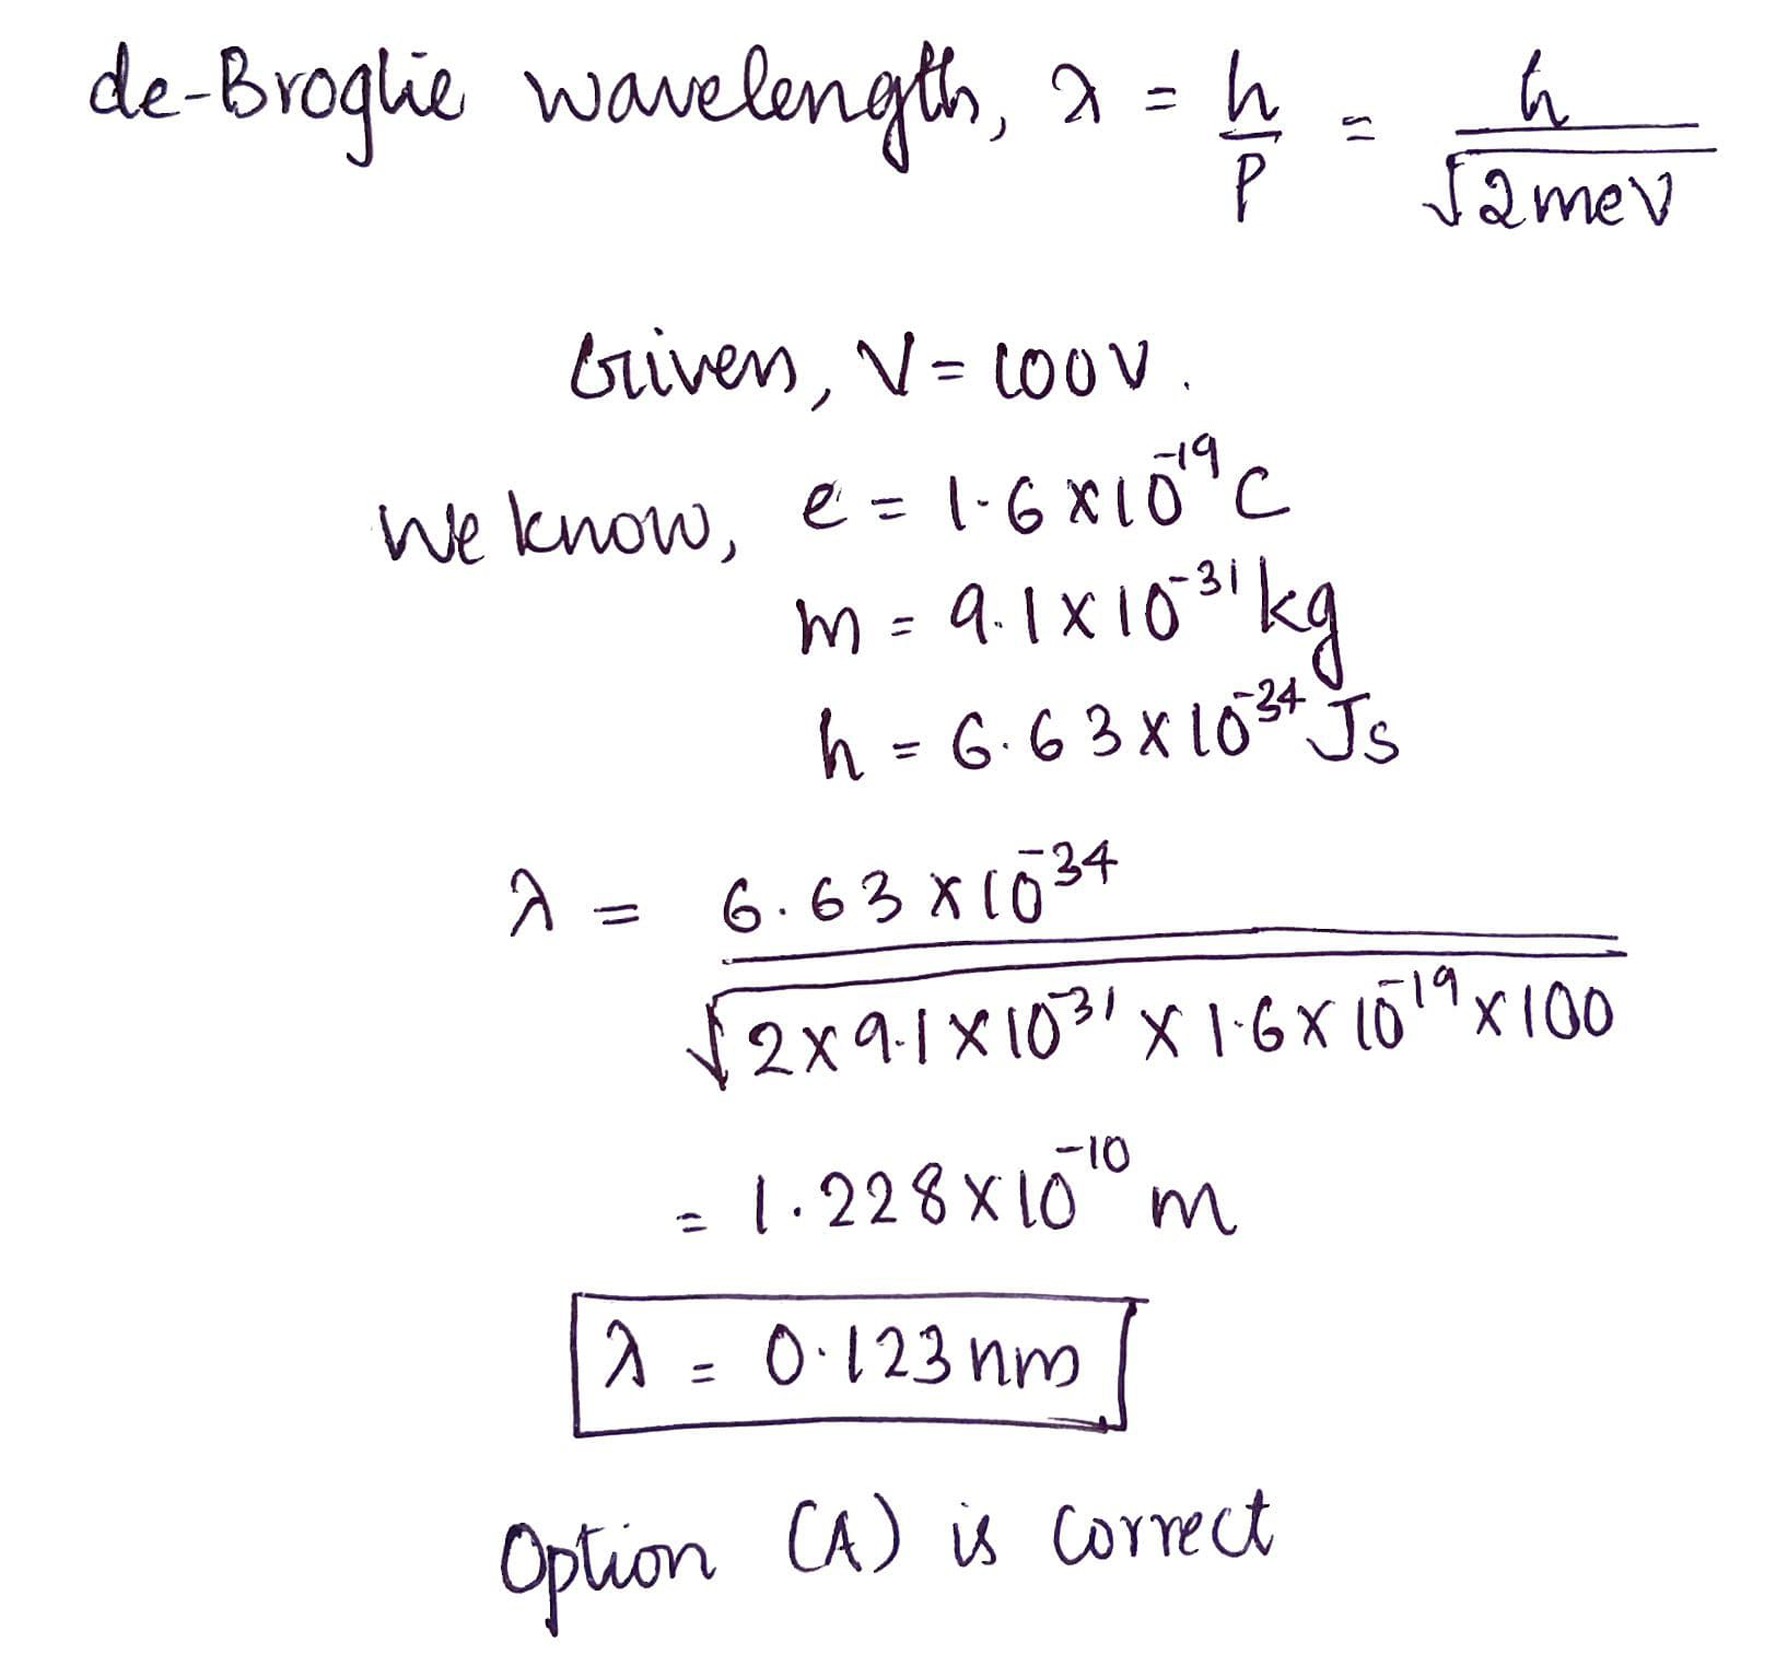 de-Broglie wavelength, λ = h/p = h/√2meV
Given, V = 100V.
We know, e = 1.6×10⁻¹⁹C
m = 9.1×10⁻³¹kg
h = 6.63×10⁻³⁴Js
λ = 6.63×10⁻³⁴
√2×9.1×10⁻³¹×1.6×10⁻¹⁹×100
= 1.228×10⁻¹⁰m
λ = 0.123nm
Option (A) is correct